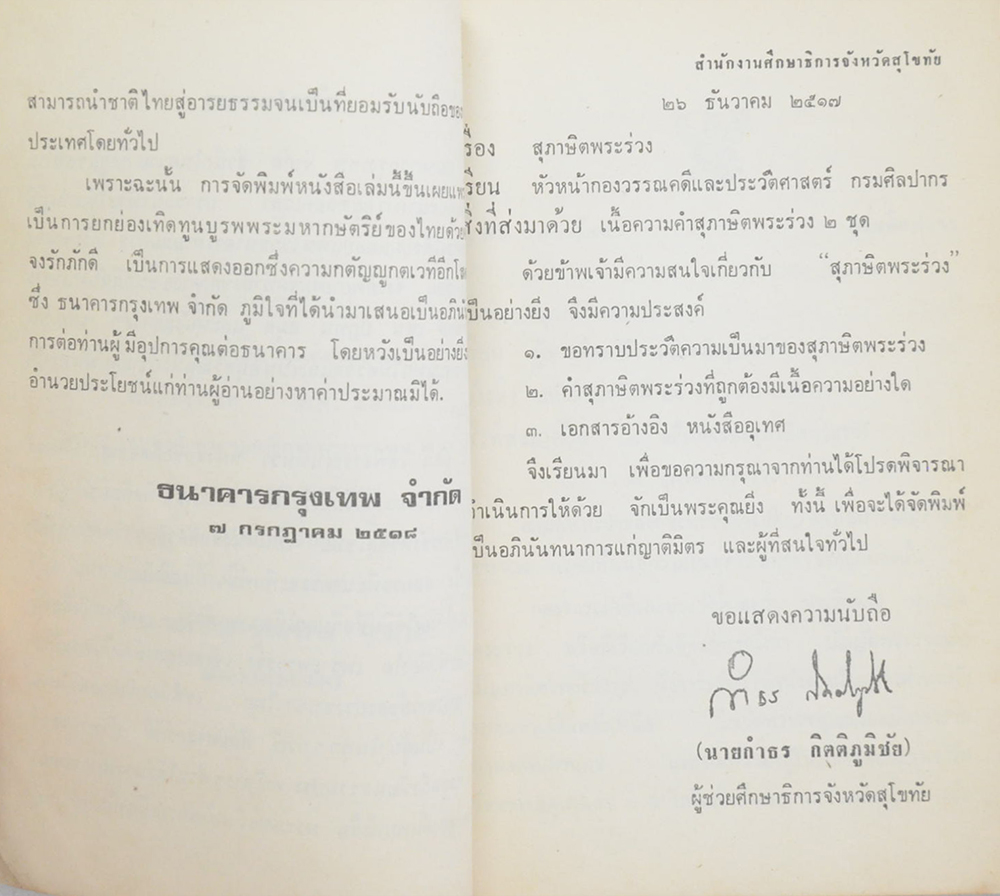 สามารถนำชาติไทยสู่อารยธรรมจนเป็นที่ยอมรับนับถือของ
ประเทศโดยทั่วไป
เพราะฉะนั้น การจัดพิมพ์หนังสือเล่มนี้ขึ้นเผยแพ
เป็นการยกย่องเทิดทูนบูรพพระมหากษัตริย์ของไทยด้วย
จงรักภักดี เป็นการแสดงออกซึ่งความกตัญญูกตเวทีอีกโส
ซึ่ง ธนาคารกรุงเทพ จำกัด ภูมิใจที่ได้นำมาเสนอเป็นอภินั
การต่อท่านผู้มีอุปการคุณต่อธนาคาร โดยหวังเป็นอย่างยิ่ง
อำนวยประโยชน์แก่ท่านผู้อ่านอย่างหาค่าประมาณมิได้.
ธนาคารกรุงเทพ จำกัด
๗ กรกฎาคม ๒๕๑๘
สำนักงานศึกษาธิการจังหวัดสุโขทัย
๒๖ ธันวาคม ๒๕๑๗
รื่อง สุภาษิตพระร่วง
รียน หัวหน้ากองวรรณคดีและประวัติศาสตร์ กรมศิลปากร
สิ่งที่ส่งมาด้วย เนื้อความคำสุภาษิตพระร่วง ๒ ชุด
ด้วยข้าพเจ้ามีความสนใจเกี่ยวกับ “สุภาษิตพระร่วง”
ป็นอย่างยิ่ง จึงมีความประสงค์
๑. ขอทราบประวัติความเป็นมาของสุภาษิตพระร่วง
๒. คำสุภาษิตพระร่วงที่ถูกต้องมีเนื้อความอย่างใด
๓. เอกสารอ้างอิง หนังสืออุเทศ
จึงเรียนมา เพื่อขอความกรุณาจากท่านได้โปรดพิจารณา
ดำเนินการให้ด้วย จักเป็นพระคุณยิ่ง ทั้งนี้ เพื่อจะได้จัดพิมพ์
ป็นอภินันทนาการแก่ญาติมิตร และผู้ที่สนใจทั่วไป
ขอแสดงความนับถือ
(นายกำธร กิตติภูมิชัย)
ผู้ช่วยศึกษาธิการจังหวัดสุโขทัย